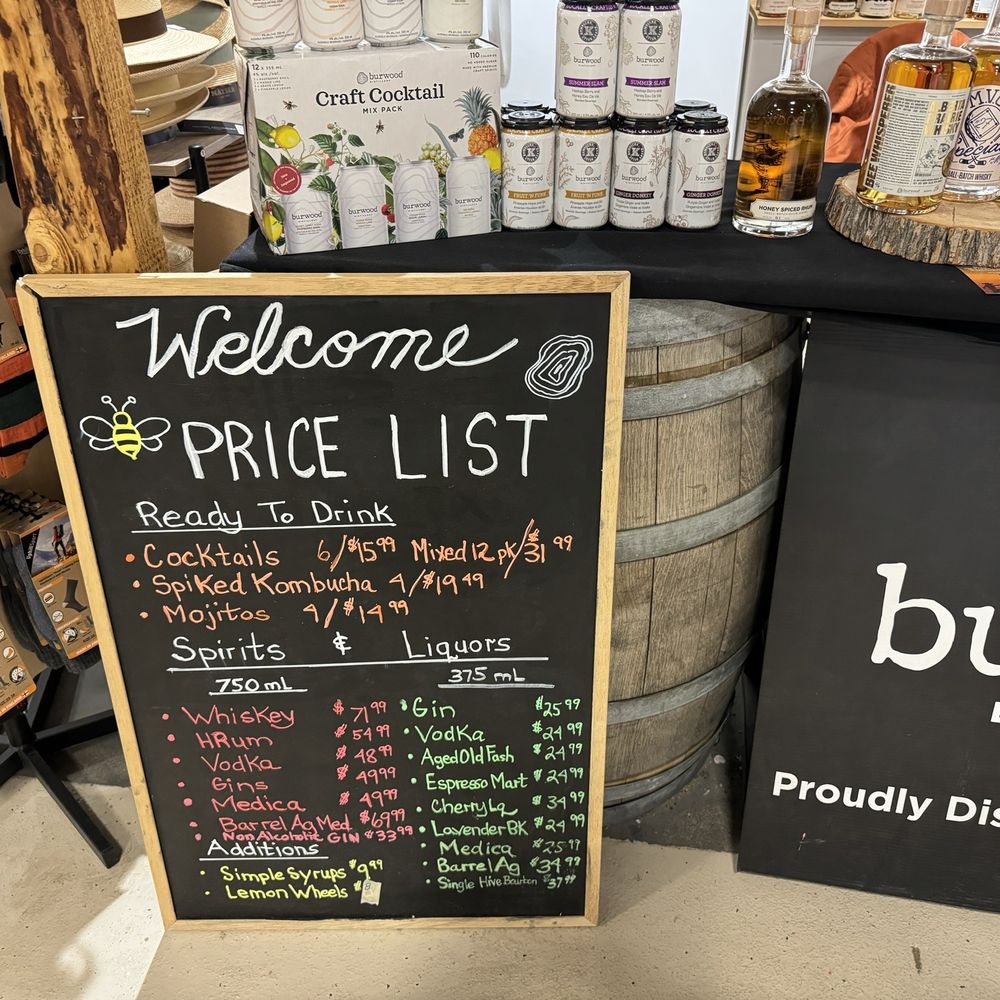 12 x 355 mL
burwood
Craft Cocktail
MIX PACK
110
burwood
burwood
burwood
burwood
K
burwood
SUMMER SLAM
K
burwood
SUMMER SLAM
K
burwood
FRUIT 'N FUNK
K
burwood
FRUIT 'N FUNK
K
burwood
GINGER DONKEY
K
burwood
GINGER DONKEY
HONEY SPICED RHUM
SMALL-BATCH WHISKY
Welcome
PRICE LIST
Ready To Drink
• Cocktails 6/$15.99 Mixed 12 pk/$31.99
• Spiked Kombucha 4/$19.49
• Mojitos 4/$14.99
Spirits & Liquors
750 mL
• Whiskey $71.99
• HRum $54.99
• Vodka $48.99
• Gins $49.99
• Medica $49.99
• Barrel Ag Med $69.99
• Non Alcoholic GIN $33.99
Additions
• Simple Syrups $9.99
• Lemon Wheels $
375 mL
• Gin $25.99
• Vodka $24.99
• Aged Old Fash $24.99
• Espresso Mart $24.99
• Cherry Lq $34.99
• Lavender BK $24.99
• Medica $25.99
• Barrel Ag $34.99
• Single Hive Bourbon $37.99
bu
Proudly Dis